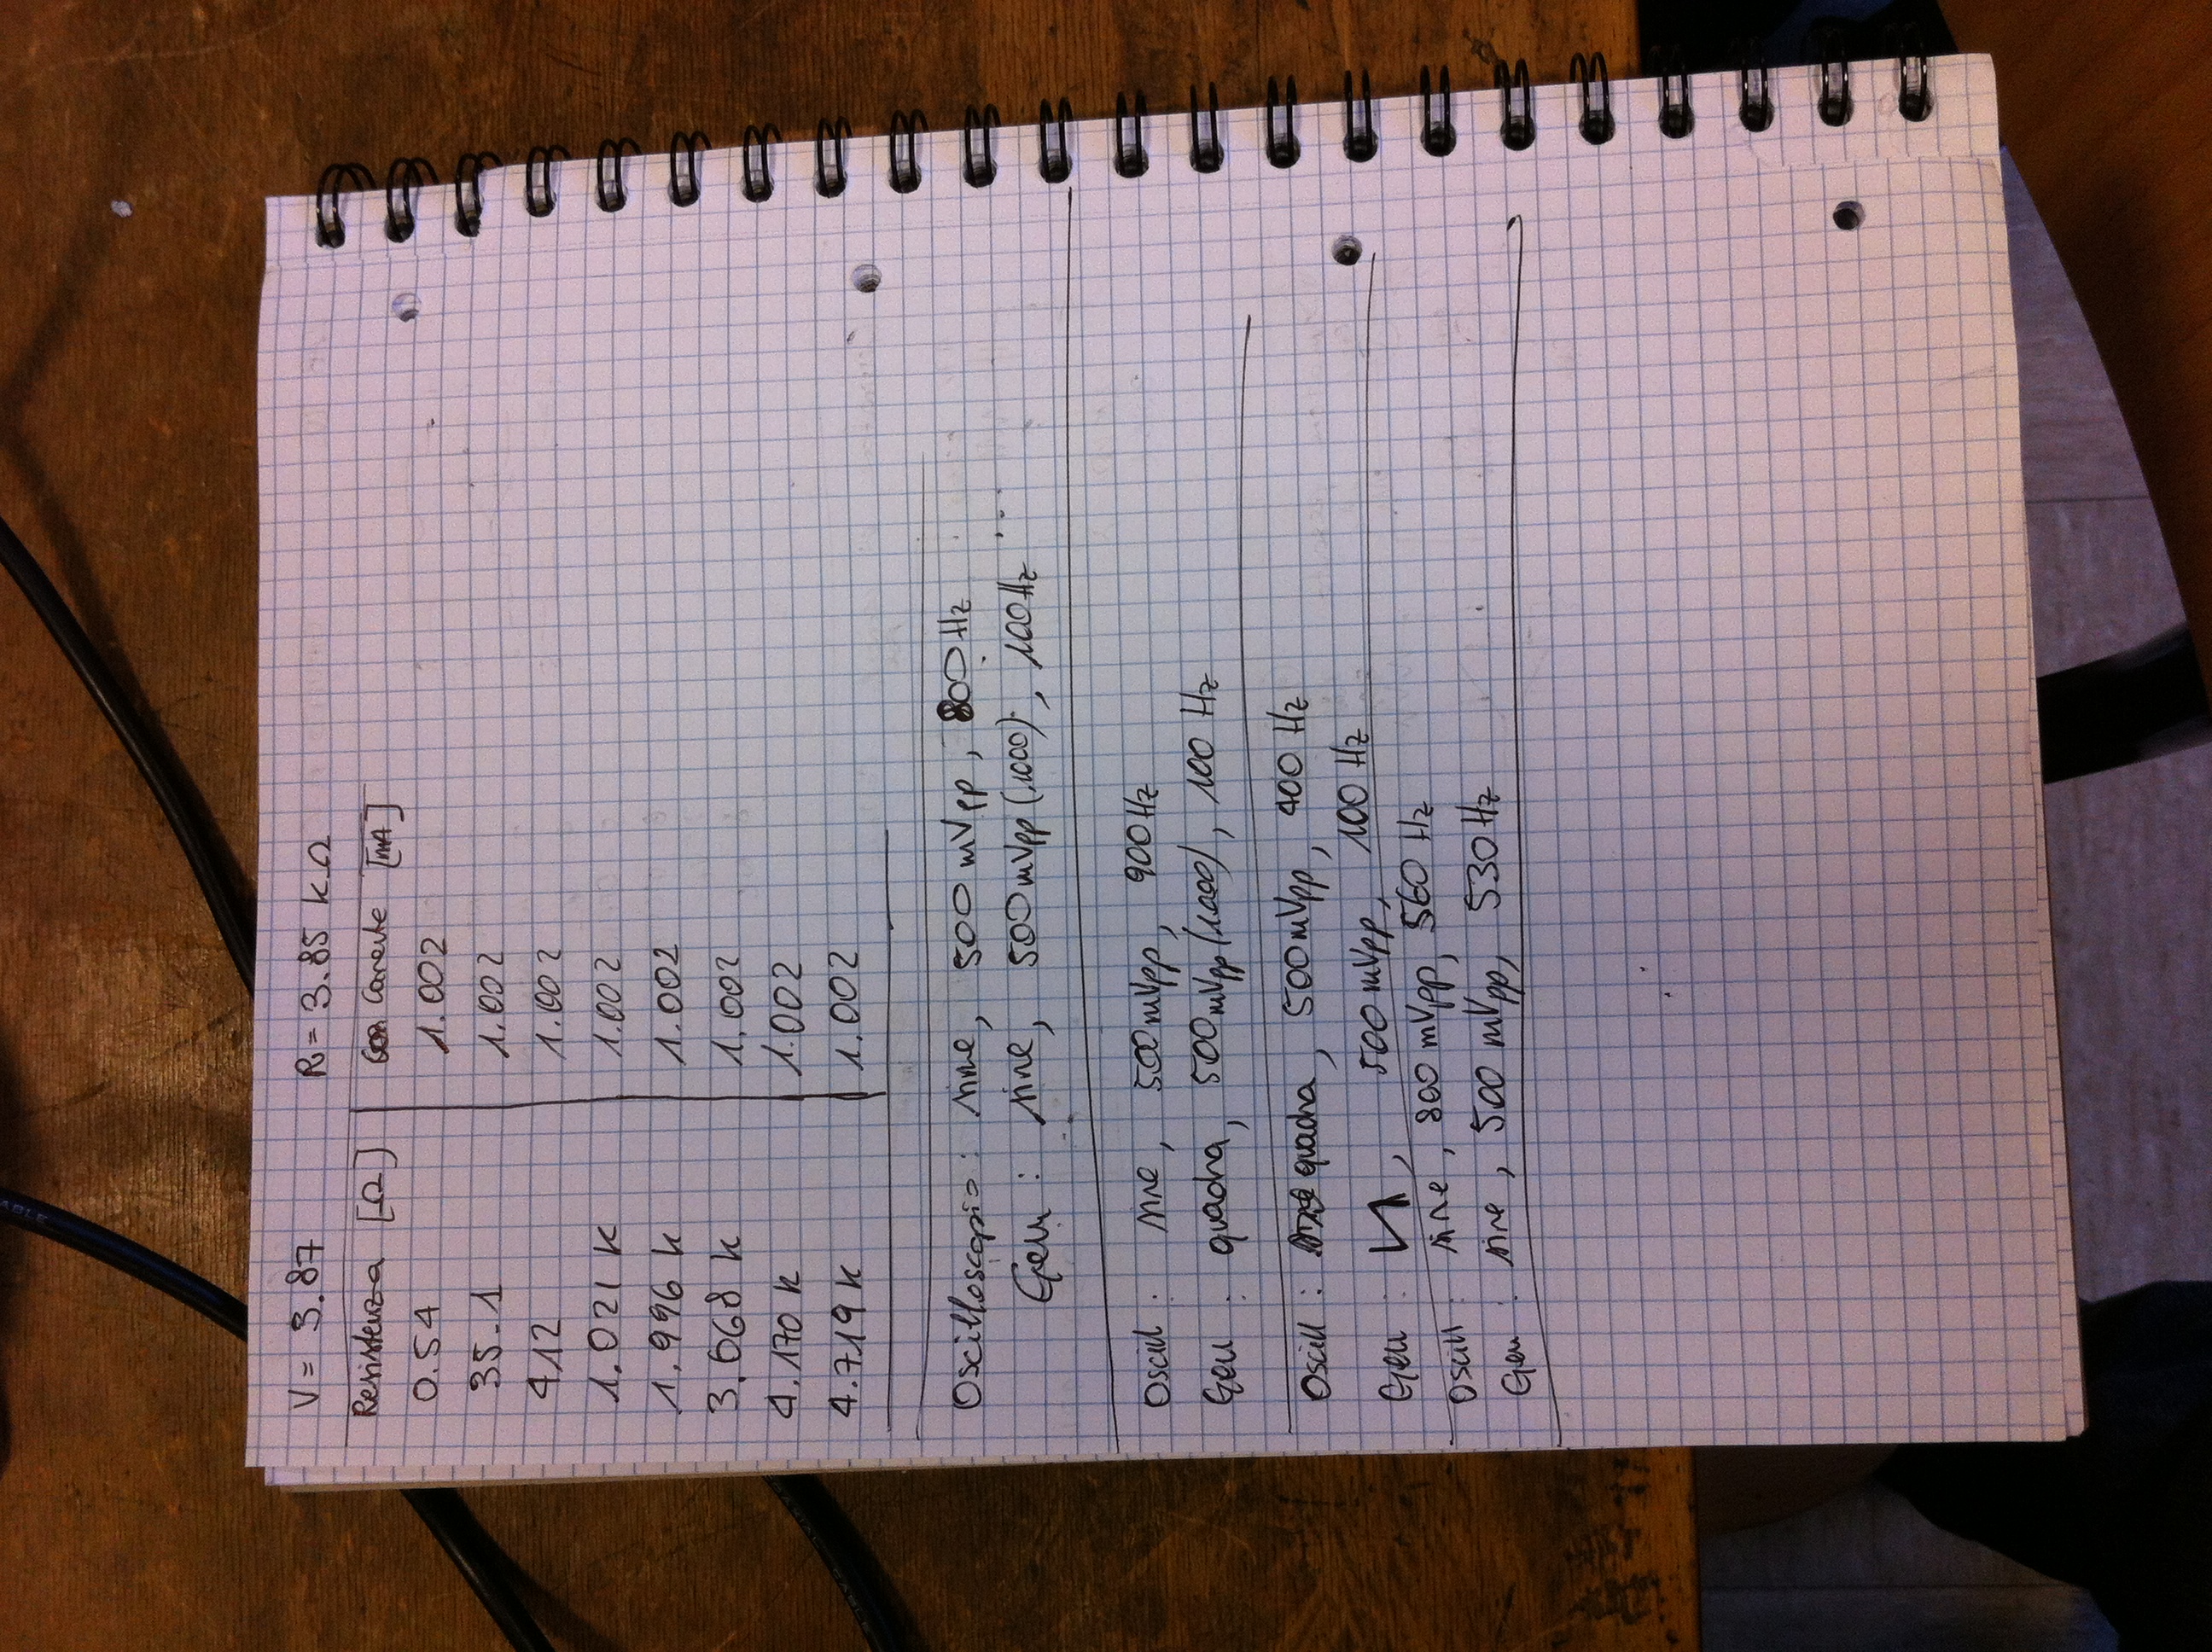 V = 3.87 R = 3.85 kΩ
Resistenza [Ω] Corrente [mA]
0.54 1.002
35.1 1.002
412 1.002
1.021 k 1.002
1.996 k 1.002
3.068 k 1.002
4.170 k 1.002
4.719 k 1.002
Oscilloscopio: sine, 500 mVpp, 800 Hz
Gen : sine, 500 mVpp (1000), 100 Hz
Oscill : sine, 500 mVpp, 900 Hz
Gen : quadra, 500 mVpp (1000), 100 Hz
Oscill : quadra, 500 mVpp, 400 Hz
Gen : , 500 mVpp, 100 Hz
Oscill : sine, 800 mVpp, 560 Hz
Gen : sine, 500 mVpp, 530 Hz